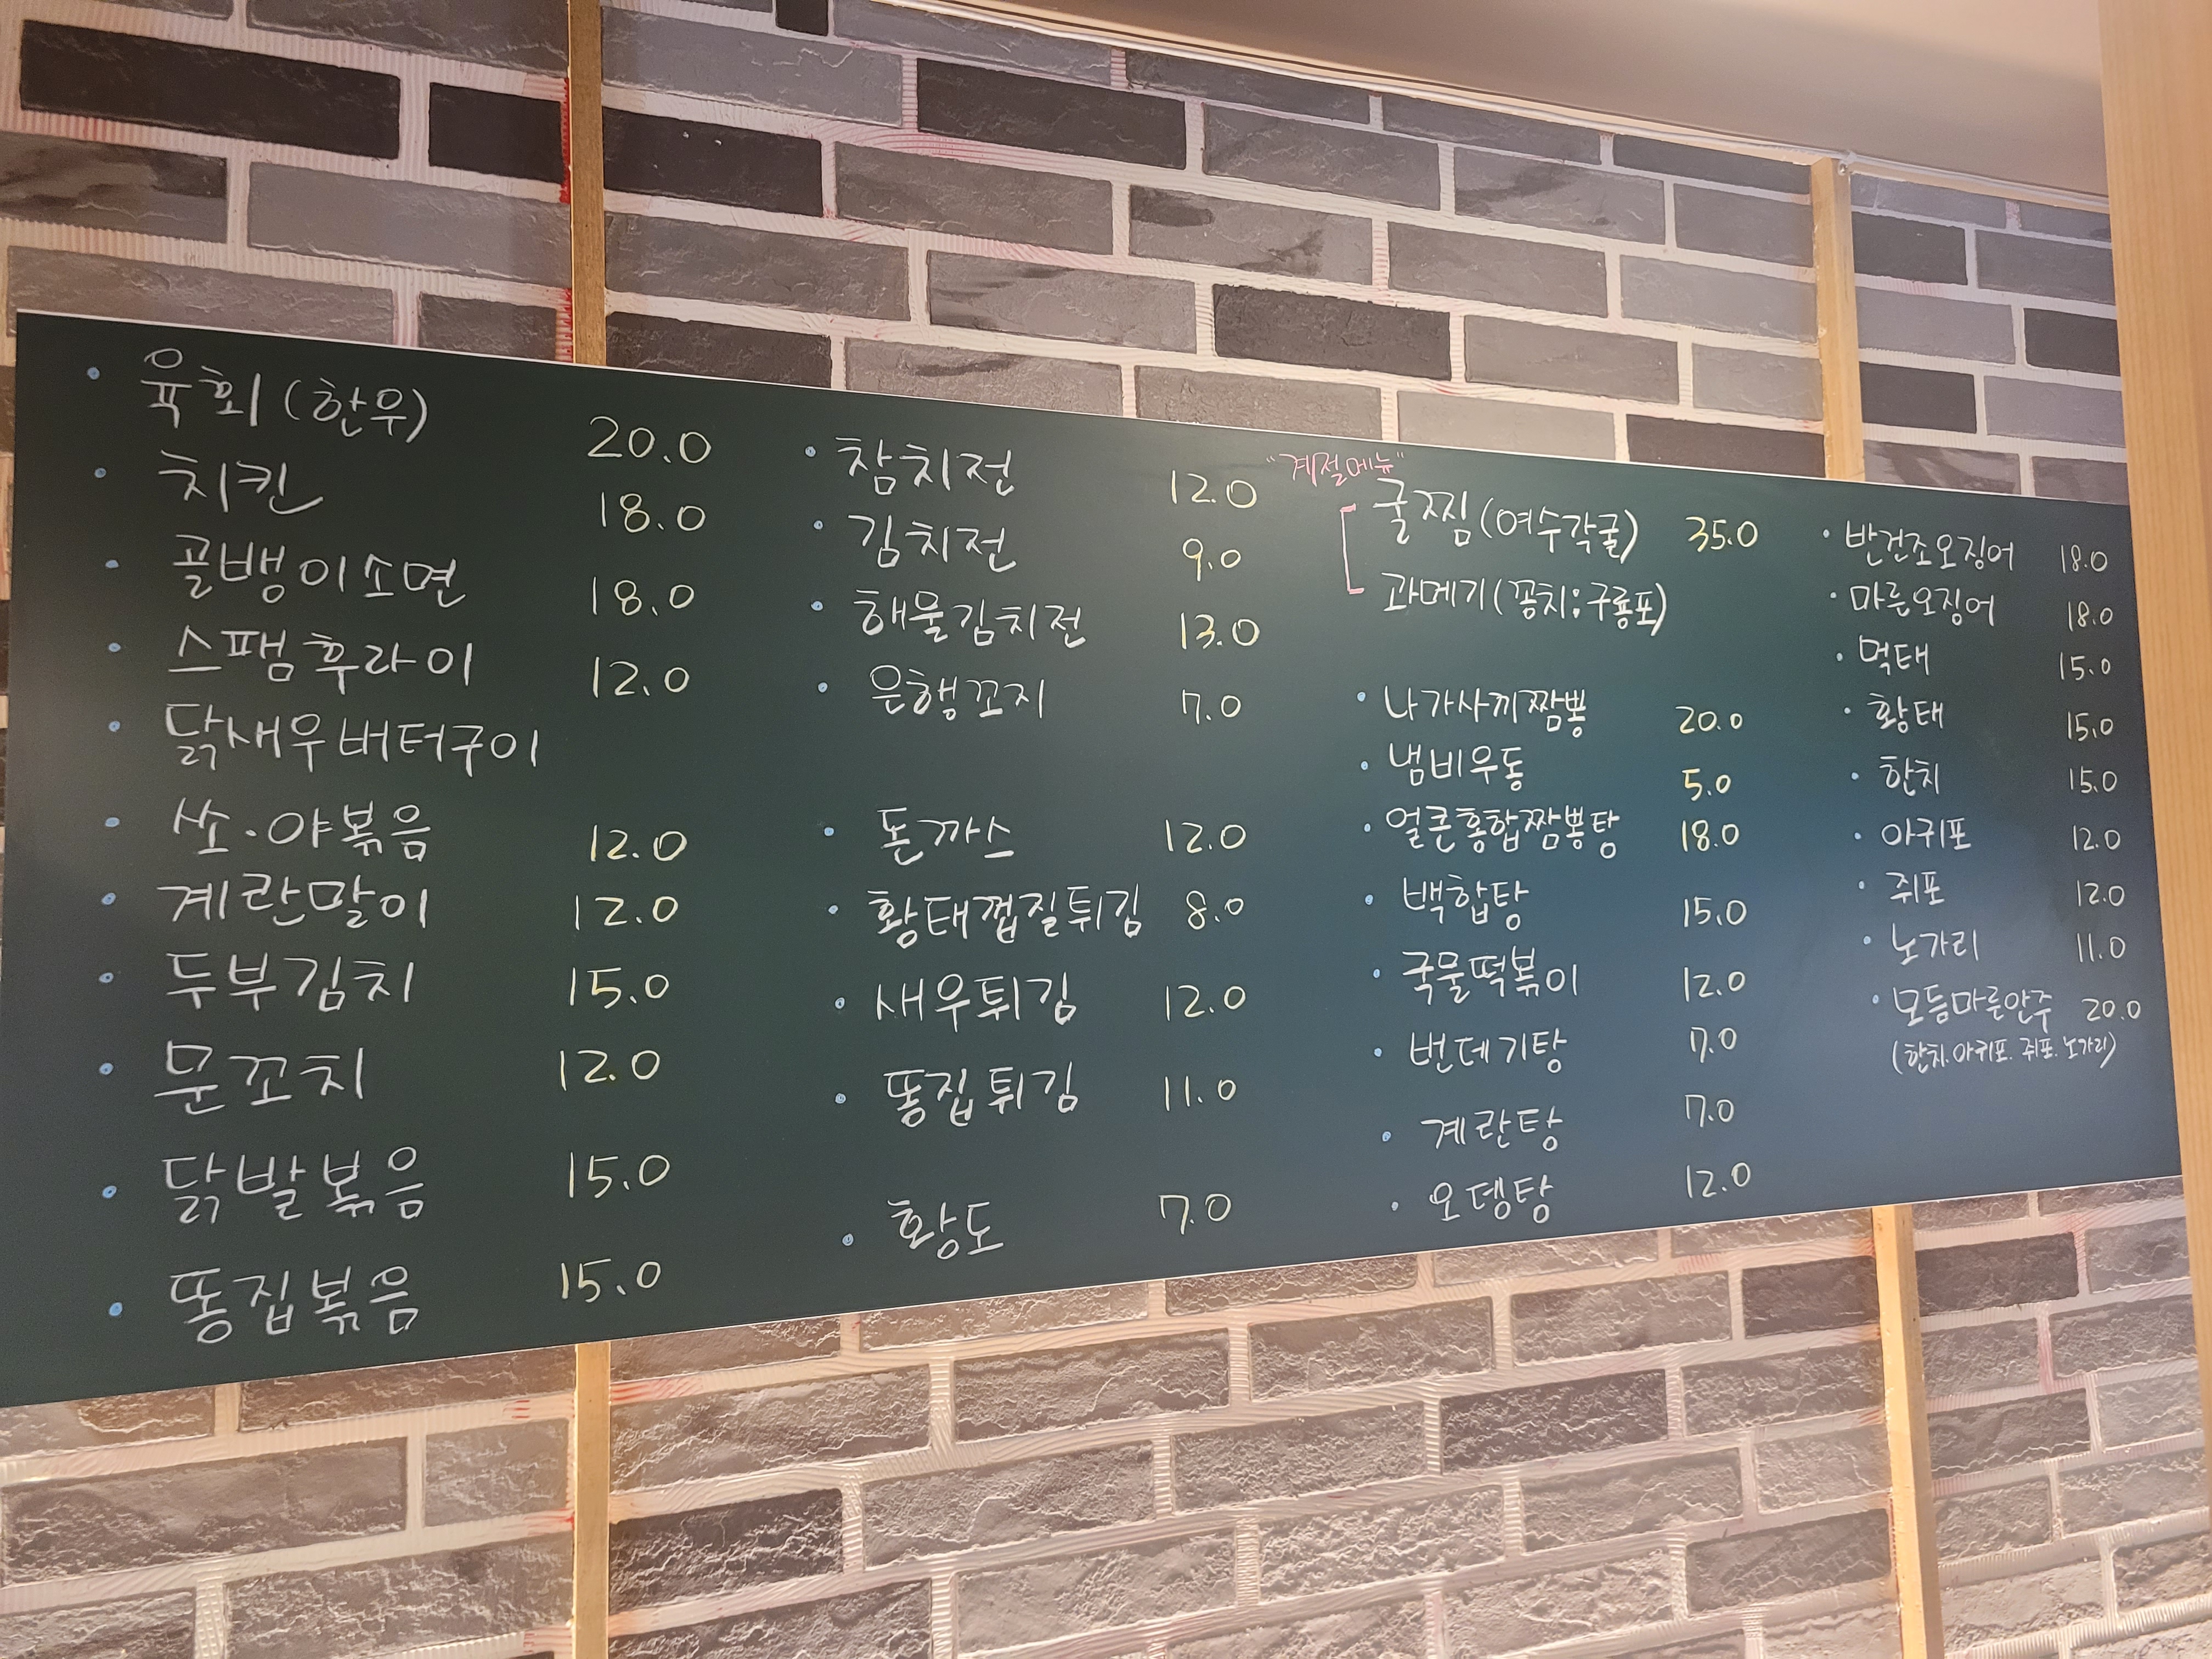 • 육회(한우) 20.0
• 치킨 18.0
• 골뱅이소면 18.0
• 스팸후라이 12.0
• 닭새우버터구이
• 쏘.야볶음 12.0
• 계란말이 12.0
• 두부김치 15.0
• 문꼬치 12.0
• 닭발볶음 15.0
• 똥집볶음 15.0
• 참치전 12.0
• 김치전 9.0
• 해물김치전 13.0
• 은행꼬지 7.0
• 돈까스 12.0
• 황태껍질튀김 8.0
• 새우튀김 12.0
• 똥집튀김 11.0
• 황도 7.0
"계절메뉴"
굴찜(여수각굴) 35.0
과메기(꽁치;구룡포)
• 나가사끼짬뽕 20.0
• 냄비우동 5.0
• 얼큰홍합짬뽕탕 18.0
• 백합탕 15.0
• 국물떡볶이 12.0
• 번데기탕 7.0
• 계란탕 7.0
• 오뎅탕 12.0
• 반건조오징어 18.0
• 마른오징어 18.0
• 먹태 15.0
• 황태 15.0
• 한치 15.0
• 아귀포 12.0
• 쥐포 12.0
• 노가리 11.0
• 모듬마른안주 20.0
(한치.아귀포.쥐포.노가리)